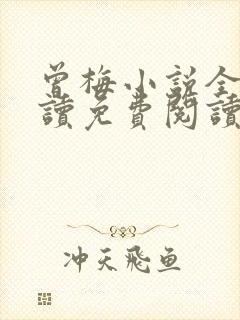 曾梅小说全
讀免費閱讀
冲天飛鱼